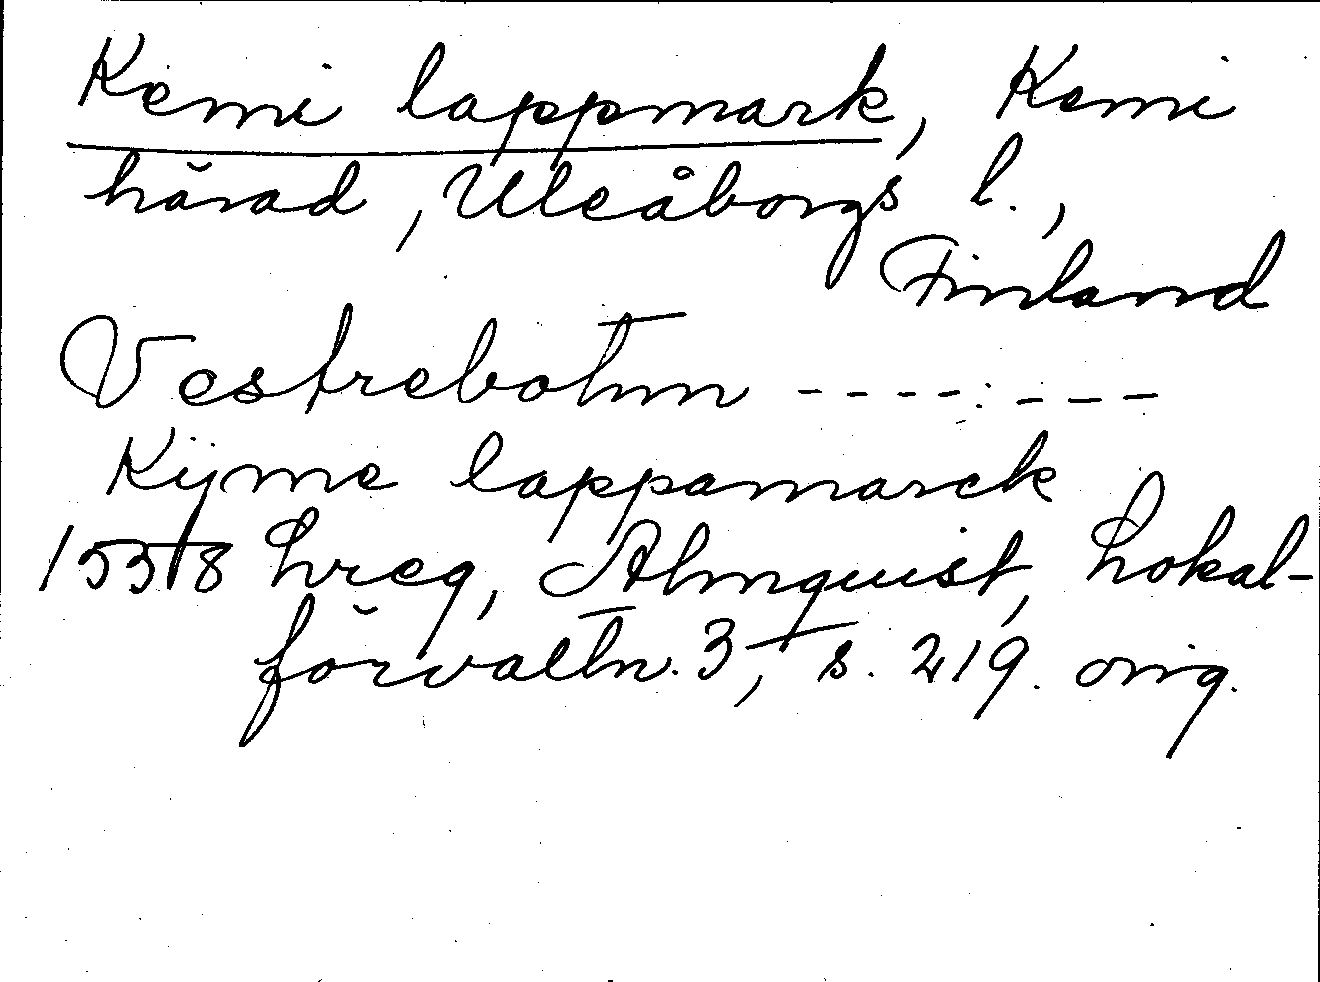 Kemi lappmark, Kemi
härad, Uleåborgs l.,
Finland
Vestrebotnn ----:---
Kijme lappamarck
lvreg, Almquist, Lokal-
förvaltn. 3, s. 219. orig.